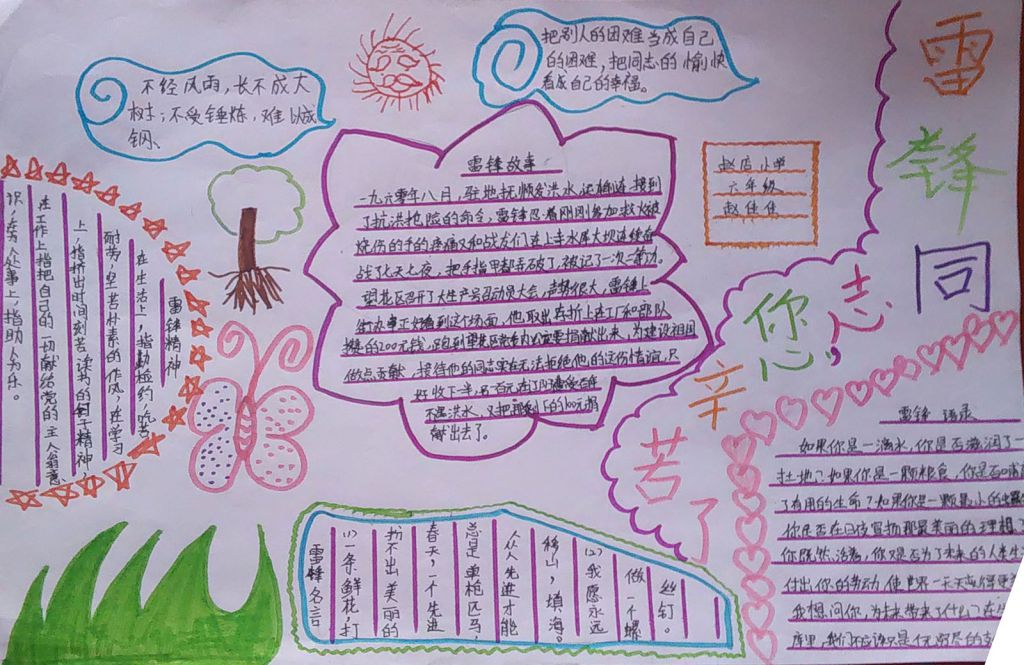 不经风雨,长不成大
树;不受锤炼,难以成
钢。
把别人的困难当成自己
的困难,把同志的愉快
看成自己的幸福。
雷锋同志,您辛苦了
赵店小学
六年级
赵佳佳
雷锋故事
一九六零年八月,驻地抚顺发洪水,运输连接到
了抗洪抢险的命令,雷锋忍着刚刚参加救火被
烧伤的手的疼痛又和战友们在上寺水库大坝连续奋
战了七天七夜,把手指甲都弄破了,被记了一次二等功。
望花区召开了大生产号召动员大会,声势很大,雷锋上
街办事正好看到这个场面,他取出存折上在工厂和部队
攒的200元钱,跑到望花区党委办公室要捐献出来,为建设祖国
做点贡献,接待他的同志实在无法拒绝他的这份情谊,只
好收下一半,另百元在辽阳遭受百年
不遇洪水,又把那剩下的100元捐
献出去了。
雷锋精神
在生活上,指勤俭节约,吃苦
耐劳,坚苦朴素的作风,在学习
上,指挤出时间刻苦读书的钉子精神,
在工作上指把自己的一切献给党的主人翁意
识,在为人处事上,指助人为乐。
雷锋名言
(1)一条鲜花,打
扮不出美丽的
春天,一个先进
总是单枪匹马,
众人先进才能
移山,填海。
(2)我愿永远
做一个螺
丝钉。
雷锋语录
如果你是一滴水,你是否滋润了一
土地?如果你是一颗粮食,你是否哺
了有用的生命?如果你是一颗最小的螺
你是否在日夜宣扬那最美丽的理想
你既然活着,你又是否为了未来的人类生
付出你的劳动,使世界一天天变得更
我想问你,为未来带来了什么?在生
库里,我们不应该只是个无穷尽的支